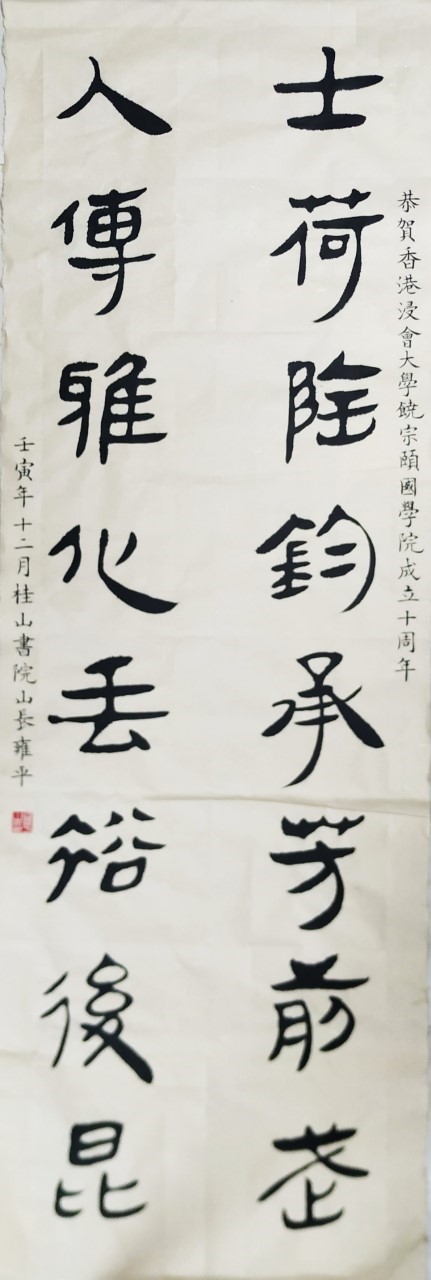 恭賀香港浸會大學饒宗頤國學院成立十周年
士荷陶鈞承芳前武
人傳雅化垂裕後昆
壬寅年十二月桂山書院山長雍平